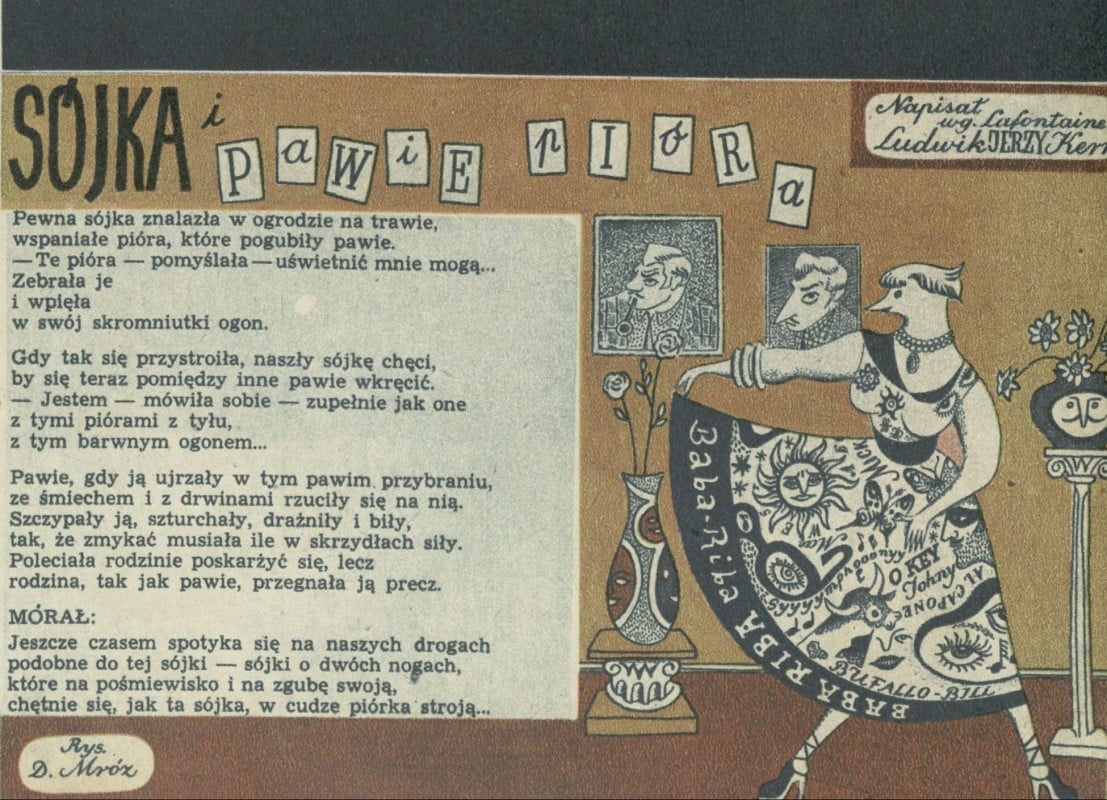 SÓJKA i PaWiE piÓRa
Napisał
wg. Lafontaine
Ludwik JERZY Kern
Pewna sójka znalazła w ogrodzie na trawie,
wspaniałe pióra, które pogubiły pawie.
— Te pióra — pomyślała — uświetnić mnie mogą...
Zebrała je
i wpięła
w swój skromniutki ogon.
Gdy tak się przystroiła, naszły sójkę chęci,
by się teraz pomiędzy inne pawie wkręcić.
— Jestem — mówiła sobie — zupełnie jak one
z tymi piórami z tyłu,
z tym barwnym ogonem...
Pawie, gdy ją ujrzały w tym pawim przybraniu,
ze śmiechem i z drwinami rzuciły się na nią.
Szczypały ją, szturchały, drażniły i biły,
tak, że zmykać musiała ile w skrzydłach siły.
Poleciała rodzinie poskarżyć się, lecz
rodzina, tak jak pawie, przegnała ją precz.
MÓRAŁ:
Jeszcze czasem spotyka się na naszych drogach
podobne do tej sójki — sójki o dwóch nogach,
które na pośmiewisko i na zgubę swoją,
chętnie się, jak ta sójka, w cudze piórka stroją...
Baba-Riba BABA RIBA BABA
Mae
O KEY
Johny
AL CAPONE
BUFALLO-BILL
Rys.
D. Mróz